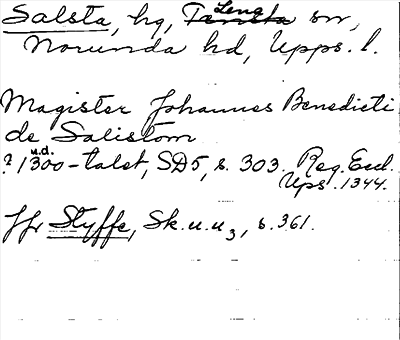 Salsta, hg, Tensta Lena sn,
Norunda hd, Upps. l.
Magister Johannes Benedicti
de Salistom
? u.d. 1300-talet, SD5, s. 303. Reg. Eccl.
Ups. 1344.
Jfr Styffe, Sk.u.u3, s. 361.